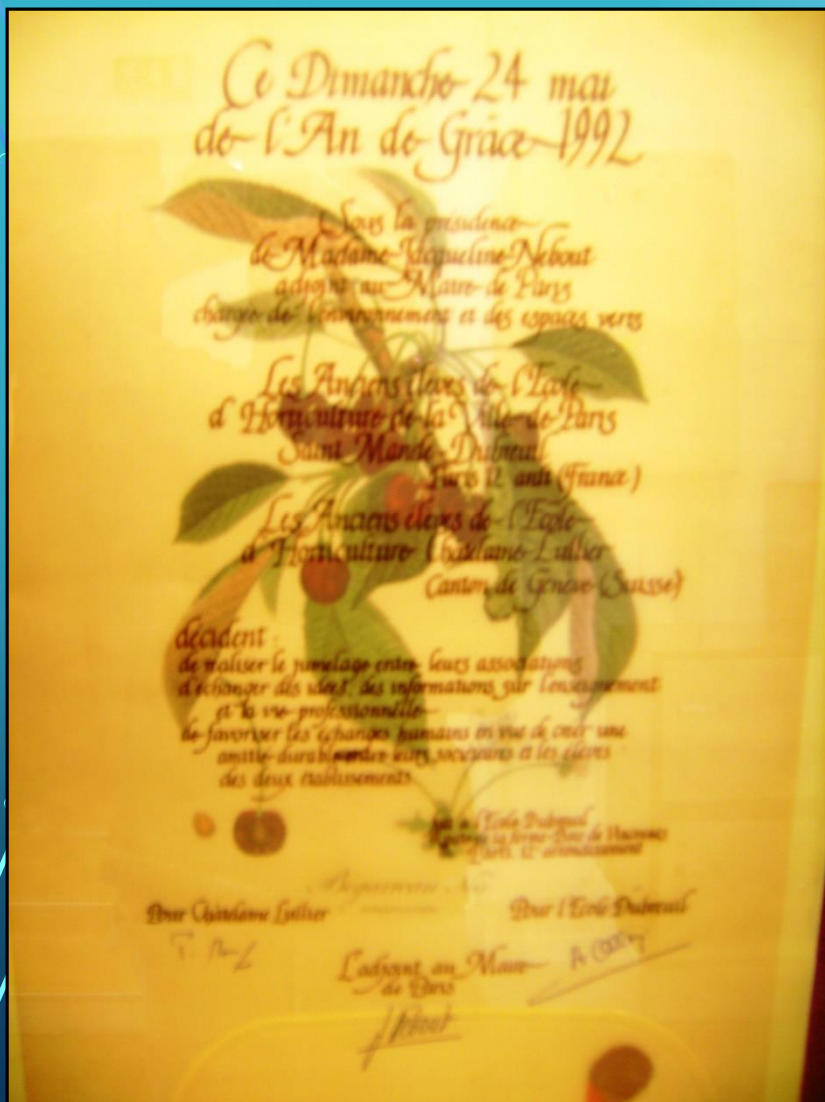 Ce Dimanche 24 mai
de l'An de Grâce 1992
Sous la présidence
de Madame Jacqueline Nebout
adjoint au Maire de Paris
chargée de l'environnement et des espaces verts
Les Anciens élèves de l'École
d'Horticulture de la Ville de Paris
Saint Mandé-Dubreuil
Paris 12 arrdt (France)
Les Anciens élèves de l'École
d'Horticulture Châtelaine-Lullier
Canton de Genève (Suisse)
décident
de réaliser le jumelage entre leurs associations
d'échanger des idées, des informations sur l'enseignement
et la vie professionnelle
de favoriser les échanges humains en vue de créer une
amitié durable entre leurs sociétaires et les élèves
des deux établissements
à l'École Dubreuil
de la ferme Bois de Vincennes
Paris 12 arrondissement
Pour Châtelaine Lullier
Pour l'École Dubreuil
L'adjoint au Maire
de Paris